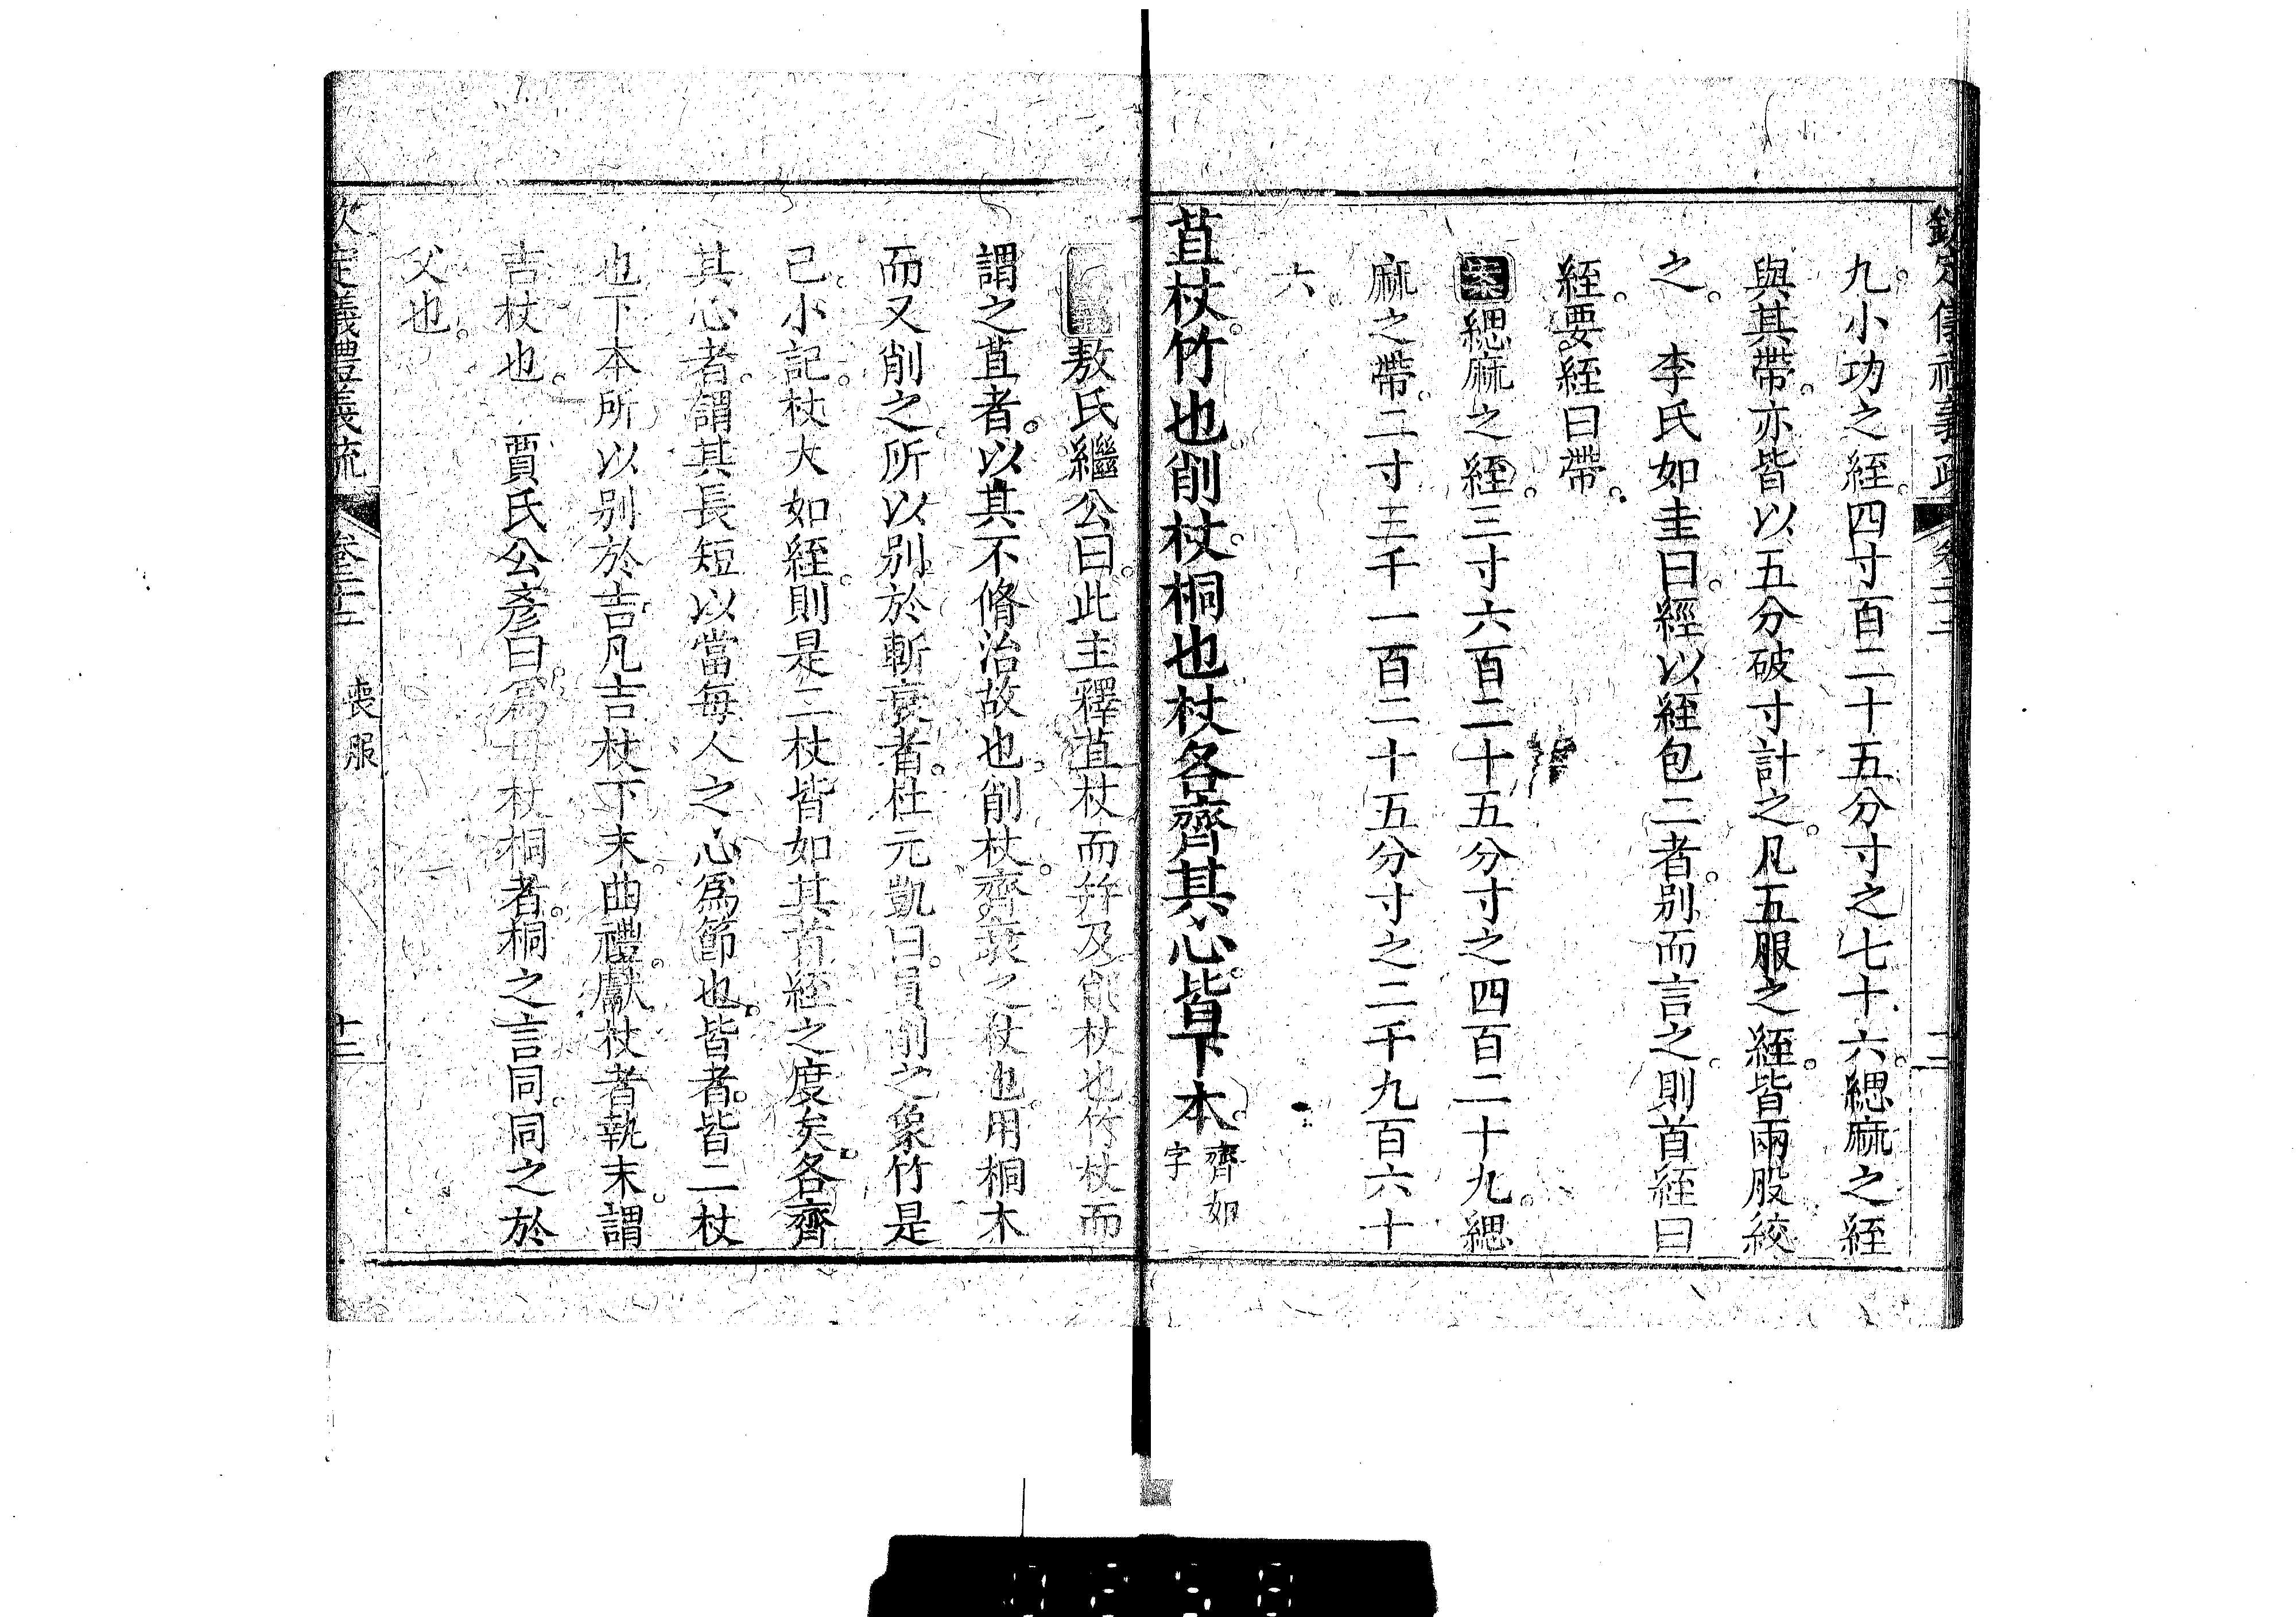 欽定儀禮義疏 卷二十二 十二
九小功之絰四寸百二十五分寸之七十六緦麻之絰
與其帶亦皆以五分破寸計之凡五服之絰皆兩股絞
之 李氏如圭曰經以絰包二者别而言之則首絰曰
絰要絰曰帶
案緦麻之絰三寸六百二十五分寸之四百二十九緦
麻之帶二寸三千一百二十五分寸之二千九百六十
六
苴杖竹也削杖桐也杖各齊其心皆下本 齊如字
敖氏繼公曰此主釋苴杖而幷及削杖也竹杖而
謂之苴者以其不脩治故也削杖齊衰之杖也用桐木
而又削之所以别於斬衰者杜元凱曰員削之象竹是
已小記杖大如絰則是二杖皆如其首絰之度矣各齊
其心者謂其長短以當每人之心爲節也皆者皆二杖
也下本所以别於吉凡吉杖下末曲禮獻杖者執末謂
吉杖也 賈氏公彥曰爲母杖桐者桐之言同同之於
父也
欽定儀禮義疏 卷二十二 喪服 十二